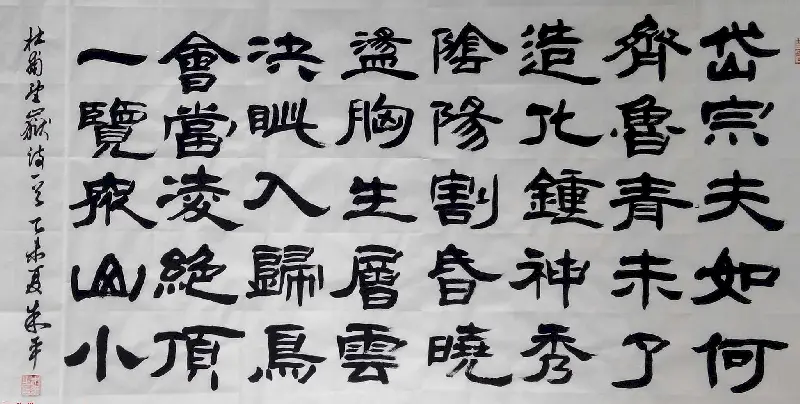 岱宗夫如何
齊魯青未了
造化鍾神秀
陰陽割昏曉
盪胸生層雲
決眦入歸鳥
會當凌絶頂
一覽衆山小
杜甫望嶽詩一首 乙未夏 朱平